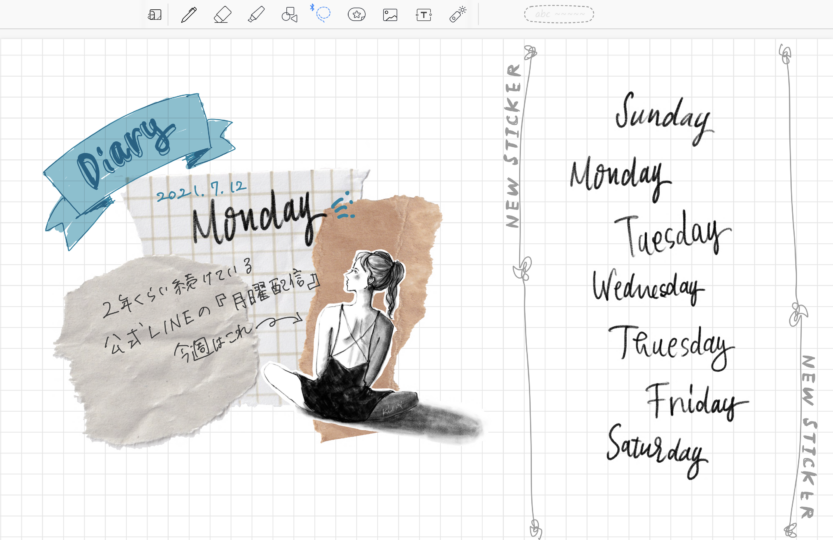 Diary
2021.7.12
Monday
2年くらい続けている
公式LINEの『月曜配信』
今週はこれ
NEW STICKER
Sunday
Monday
Tuesday
Wednesday
Thuesday
Friday
Saturday
NEW STICKER